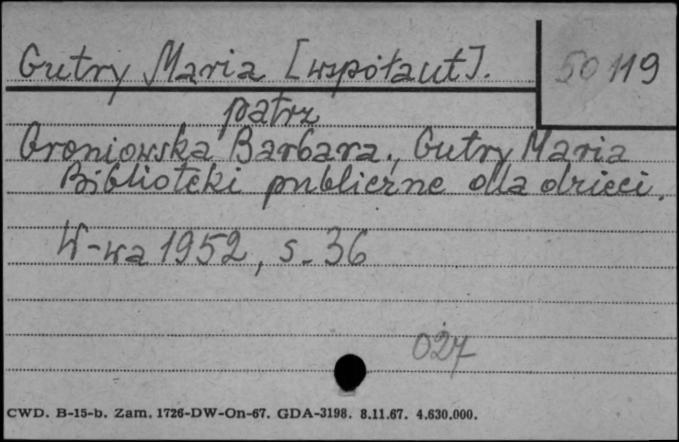 Gutry Maria [współaut].
50 119
patrz
Groniowska Barbara, Gutry Maria
Biblioteki publiczne dla dzieci.
W-wa 1952, s. 36
027
CWD. B-15-b. Zam. 1726-DW-On-67. GDA-3198. 8.11.67. 4.630.000.